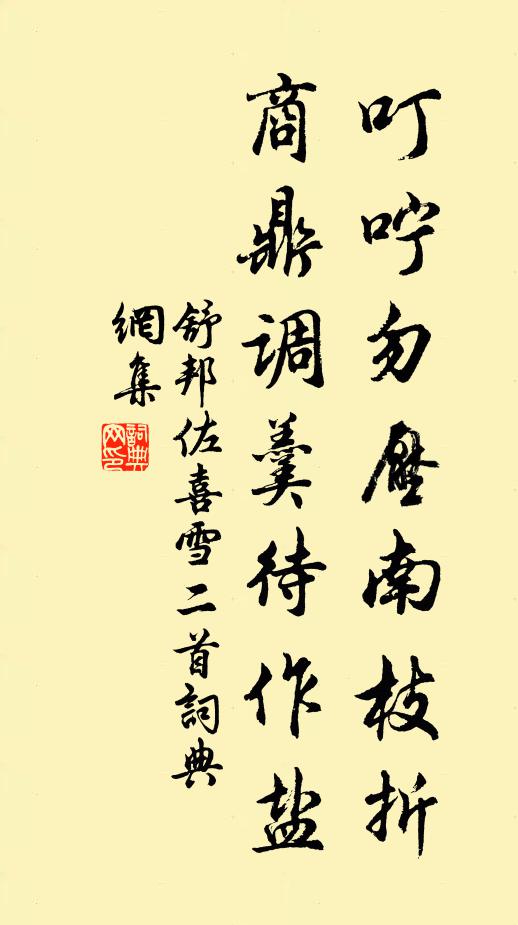 叮咛勿壓南枝折
商鼎调羹待作盐
舒邦佐喜雪二首詞典
網集
詞典
网印